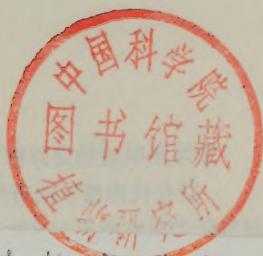 中国科学院
图书馆藏
植物研究所